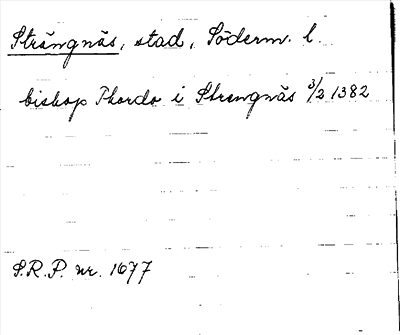 Strängnäs, stad, Söderm. l.
biskop Thordo i Strengnäs 3/2 1382
S.R.P. nr. 1677